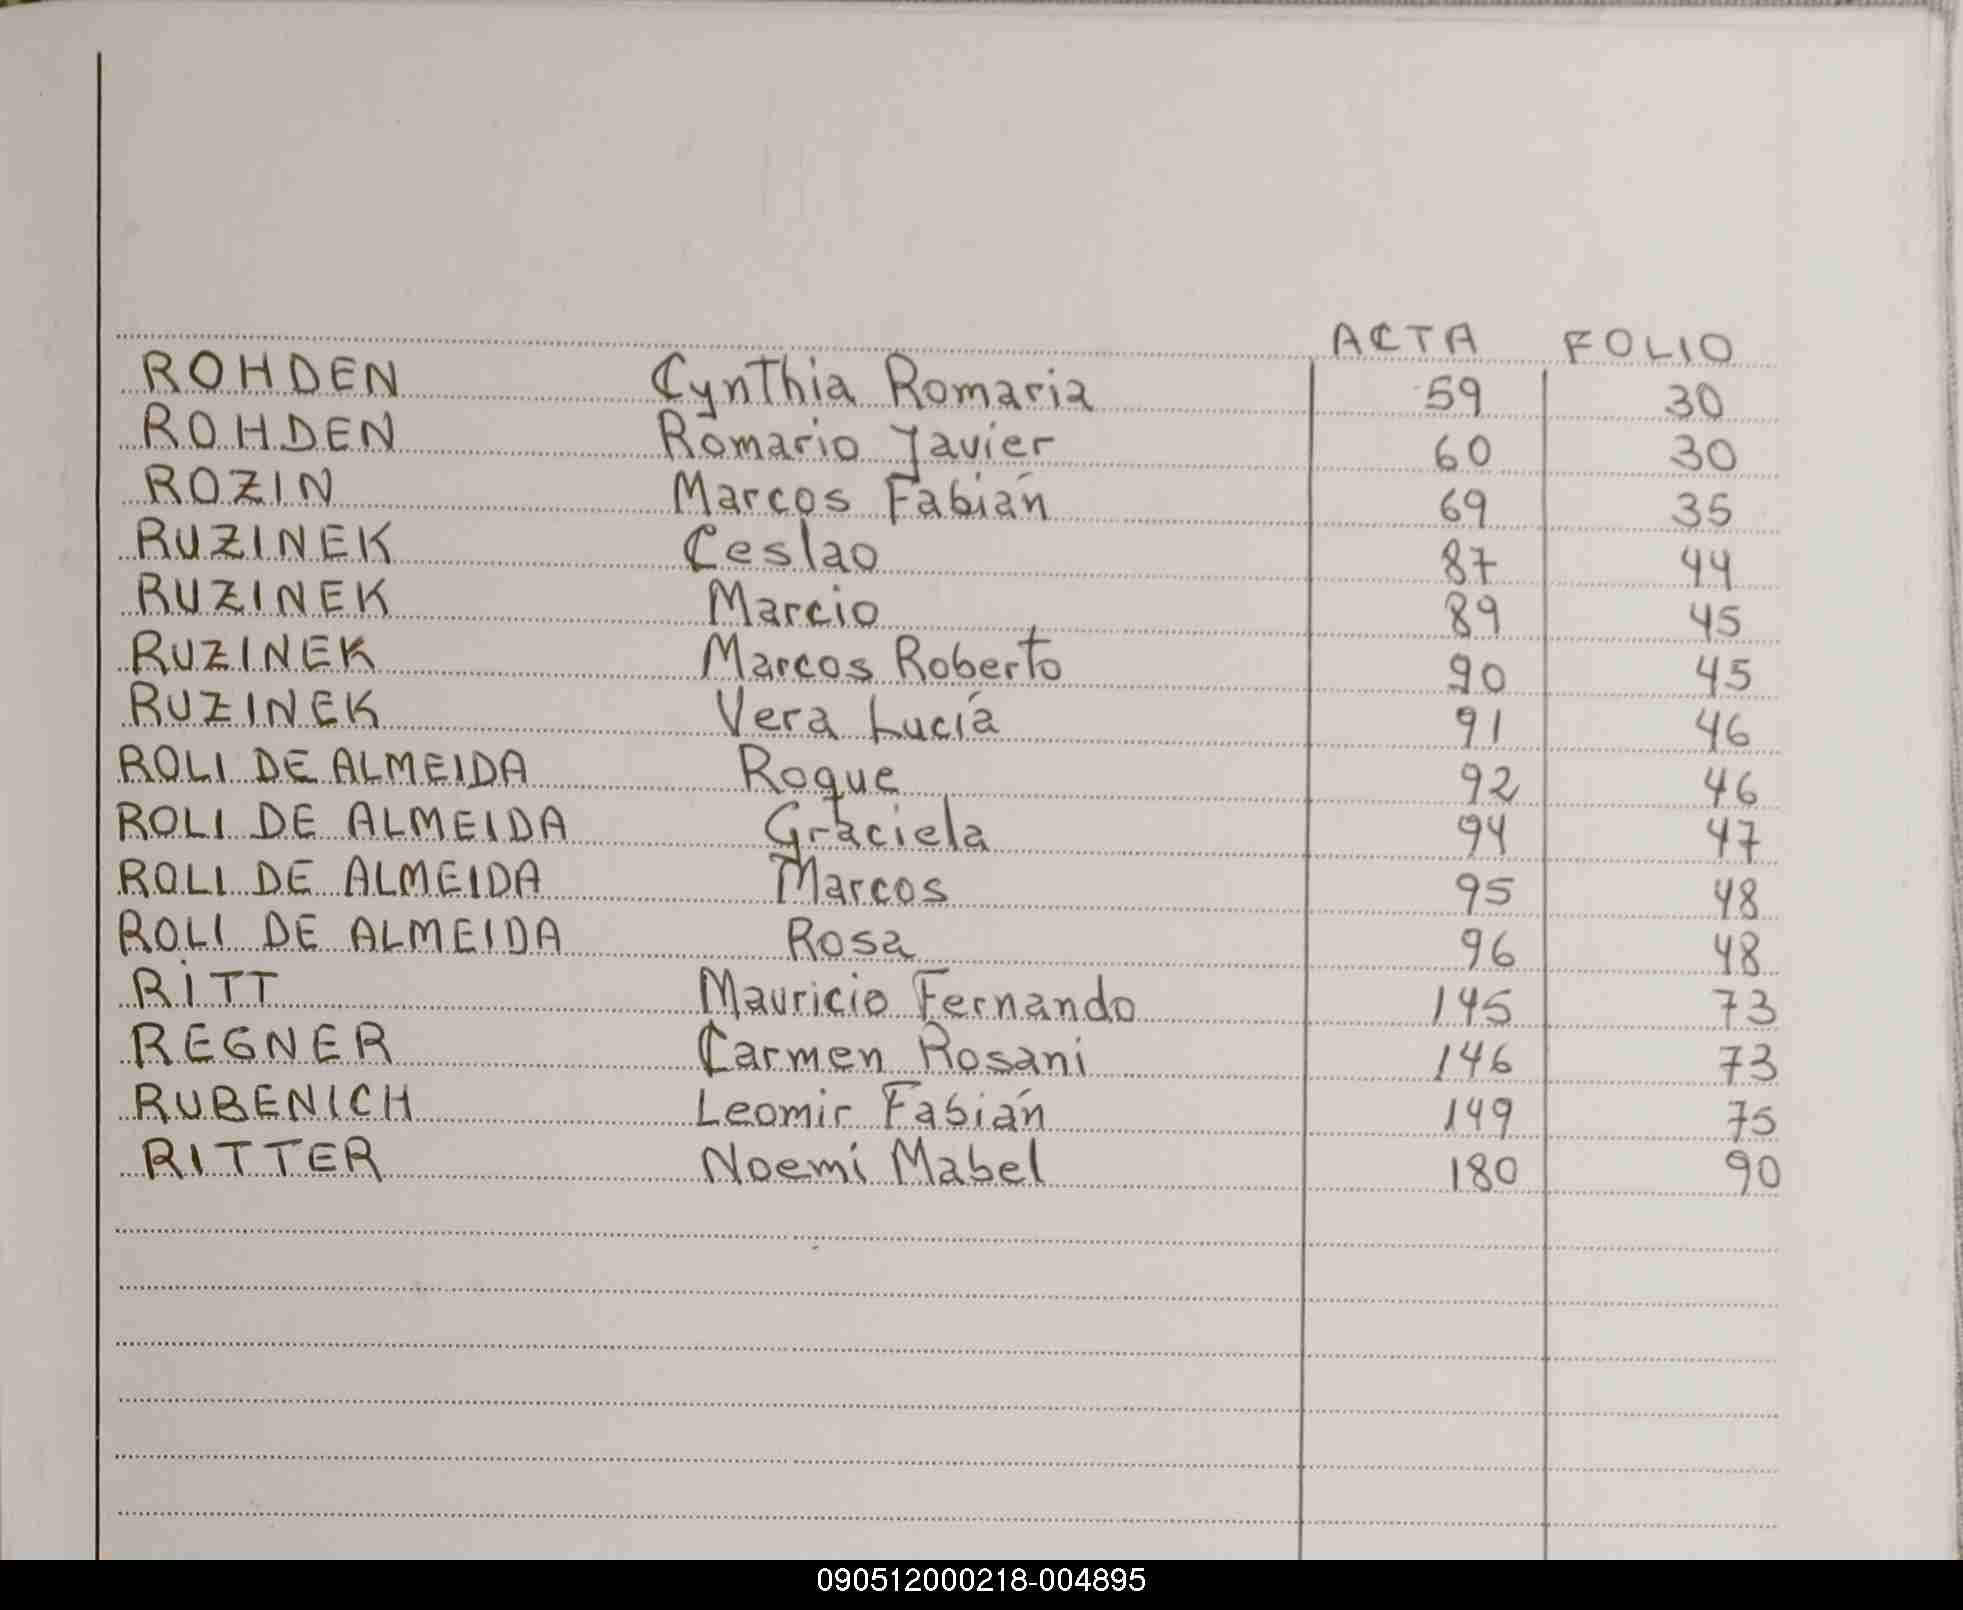 ACTA FOLIO
ROHDEN Cynthia Romaria 59 30
ROHDEN Romario Javier 60 30
ROZIN Marcos Fabián 69 35
RUZINEK Ceslao 87 44
RUZINEK Marcio 89 45
RUZINEK Marcos Roberto 90 45
RUZINEK Vera Lucía 91 46
ROLI DE ALMEIDA Roque 92 46
ROLI DE ALMEIDA Graciela 94 47
ROLI DE ALMEIDA Marcos 95 48
ROLI DE ALMEIDA Rosa 96 48
RITT Mauricio Fernando 145 73
REGNER Carmen Rosani 146 73
RUBENICH Leomir Fabián 149 75
RITTER Noemí Mabel 180 90
090512000218-004895